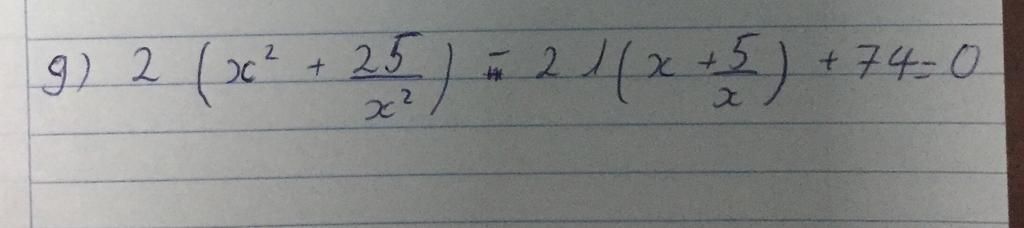 g) 2 (x² + 25/x²) - 21(x + 5/x) + 74 = 0